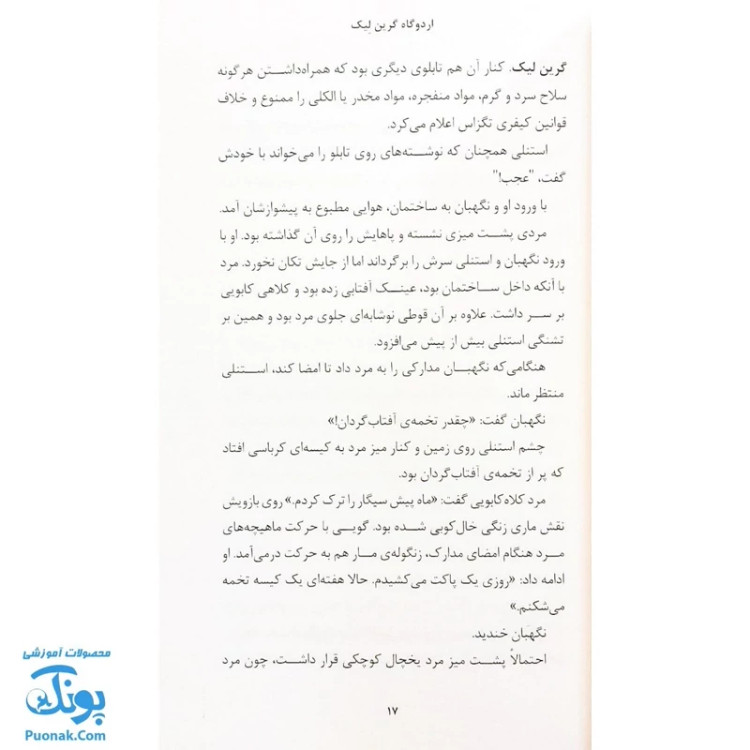 اردوگاه گرین لیک
گرین لیک. کنار آن هم تابلوی دیگری بود که همراه‌داشتن هرگونه
سلاح سرد و گرم، مواد منفجره، مواد مخدر یا الکلی را ممنوع و خلاف
قوانین کیفری تگزاس اعلام می‌کرد.
استنلی همچنان که نوشته‌های روی تابلو را می‌خواند با خودش
گفت، "عجب!"
با ورود او و نگهبان به ساختمان، هوایی مطبوع به پیشوازشان آمد.
مردی پشت میزی نشسته و پاهایش را روی آن گذاشته بود. او با
ورود نگهبان و استنلی سرش را برگرداند اما از جایش تکان نخورد. مرد
با آنکه داخل ساختمان بود، عینک آفتابی زده بود و کلاهی کابویی
بر سر داشت. علاوه بر آن قوطی نوشابه‌ای جلوی مرد بود و همین بر
تشنگی استنلی بیش از پیش می‌افزود.
هنگامی‌که نگهبان مدارکی را به مرد داد تا امضا کند، استنلی
منتظر ماند.
نگهبان گفت: «چقدر تخمه‌ی آفتاب‌گردان!»
چشم استنلی روی زمین و کنار میز مرد به کیسه‌ای کرباسی افتاد
که پر از تخمه‌ی آفتاب‌گردان بود.
مرد کلاه‌کابویی گفت: «ماه پیش سیگار را ترک کردم.» روی بازویش
نقش ماری زنگی خال‌کوبی شده بود. گویی با حرکت ماهیچه‌های
مرد هنگام امضای مدارک، زنگوله‌ی مار هم به حرکت درمی‌آمد. او
ادامه داد: «روزی یک پاکت می‌کشیدم. حالا هفته‌ای یک کیسه تخمه
می‌شکنم.»
نگهبان خندید.
احتمالاً پشت میز مرد یخچال کوچکی قرار داشت، چون مرد
۱۷
محصولات آموزشی
پونک
Puonak.Com